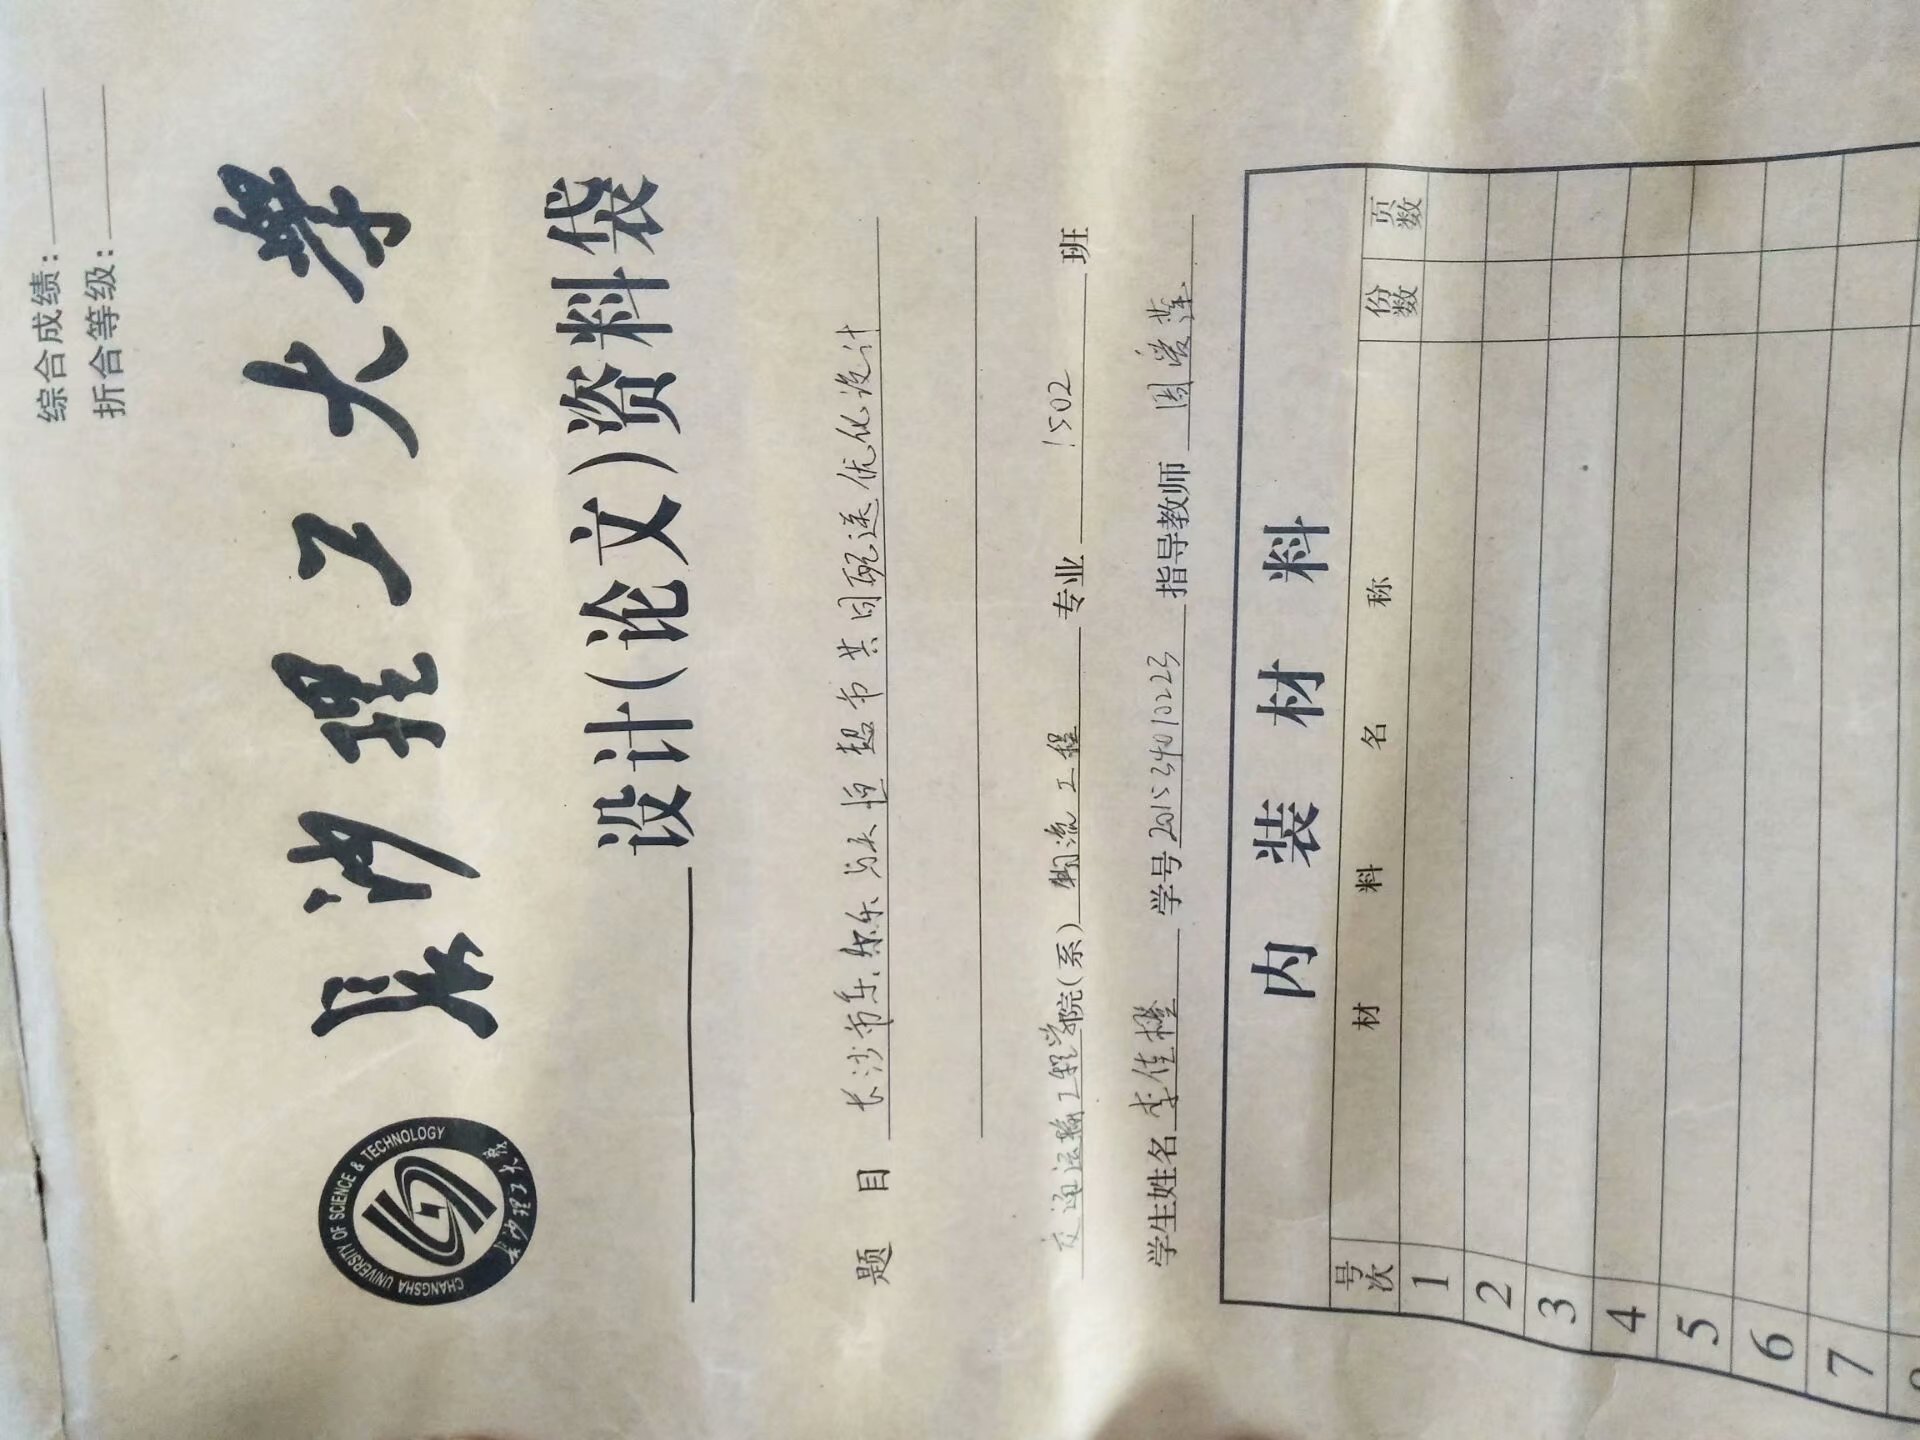 综合成绩:
折合等级:
长沙理工大学
CHANGSHA UNIVERSITY OF SCIENCE & TECHNOLOGY
长沙理工大学
设计(论文)资料袋
题 目 长沙市乐尔乐与天恒超市共同配送优化设计
交通运输工程学院(系) 物流工程 专业 1502 班
学生姓名 李佳橙 学号 201524010223 指导教师 周爱莲
内装材料
号次 材料名称 份数 页数
1
2
3
4
5
6
7